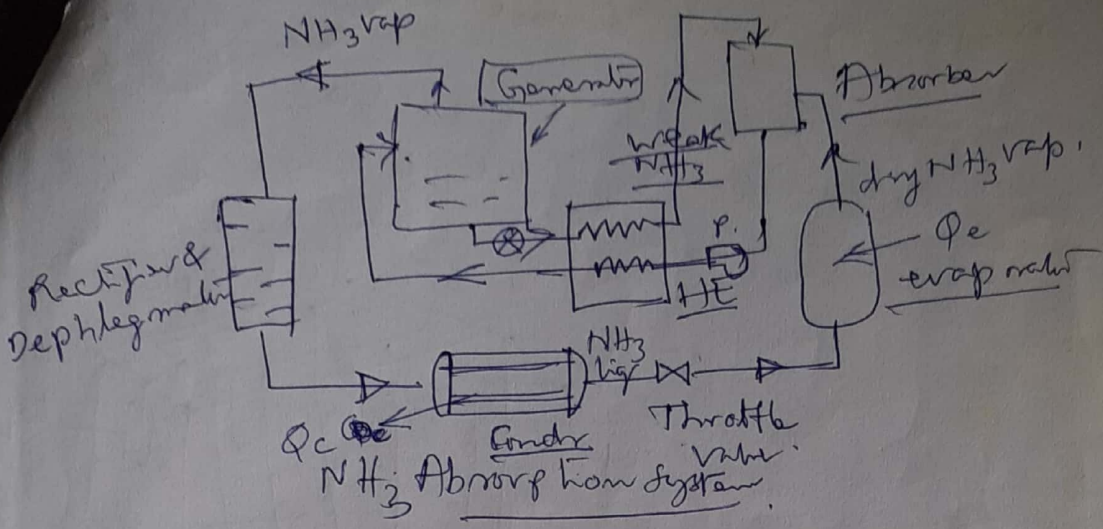 NH3 vap
Generator
Absorber
Weak
NH3
dry NH3 vap.
P.
Qe
evaporator
Rectifier &
Dephlegmator
HE
NH3
liq
Throttle
valve.
Qc
Condr
NH3 Absorption System